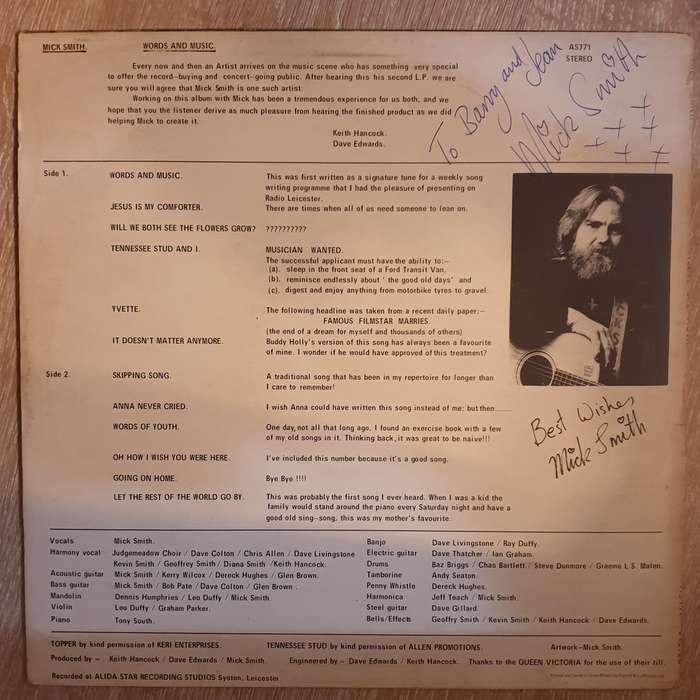 MICK SMITH. WORDS AND MUSIC. AS771
STEREO
Every now and then an Artist arrives on the music scene who has something very special
to offer the record-buying and concert-going public. After hearing this his second L.P. we are
sure you will agree that Mick Smith is one such artist.
Working on this album with Mick has been a tremendous experience for us both, and we
hope that you the listener derive as much pleasure from hearing the finished product as we did
helping Mick to create it.
Keith Hancock.
Dave Edwards.
To Barry and Jean
Mick Smith
x x x x x x
Side 1. WORDS AND MUSIC. This was first written as a signature tune for a weekly song
writing programme that I had the pleasure of presenting on
Radio Leicester.
JESUS IS MY COMFORTER. There are times when all of us need someone to lean on.
WILL WE BOTH SEE THE FLOWERS GROW? ??????????
TENNESSEE STUD AND I. MUSICIAN WANTED.
The successful applicant must have the ability to:-
(a). sleep in the front seat of a Ford Transit Van.
(b). reminisce endlessly about ' the good old days' and
(c). digest and enjoy anything from motorbike tyres to gravel.
YVETTE. The following headline was taken from a recent daily paper:-
FAMOUS FILMSTAR MARRIES.
(the end of a dream for myself and thousands of others)
IT DOESN'T MATTER ANYMORE. Buddy Holly's version of this song has always been a favourite
of mine. I wonder if he would have approved of this treatment?
Side 2. SKIPPING SONG. A traditional song that has been in my repertoire for longer than
I care to remember!
ANNA NEVER CRIED. I wish Anna could have written this song instead of me; but then.......
WORDS OF YOUTH. One day, not all that long ago, I found an exercise book with a few
of my old songs in it. Thinking back, it was great to be naive!!!
OH HOW I WISH YOU WERE HERE. I've included this number because it's a good song.
GOING ON HOME. Bye Bye !!!!
LET THE REST OF THE WORLD GO BY. This was probably the first song I ever heard. When I was a kid the
family would stand around the piano every Saturday night and have a
good old sing-song, this was my mother's favourite.
Best Wishes
Mick Smith
Vocals Mick Smith.
Harmony vocal Judgemeadow Choir / Dave Colton / Chris Allen / Dave Livingstone
Kevin Smith / Geoffrey Smith / Diana Smith / Keith Hancock.
Acoustic guitar Mick Smith / Kerry Wilcox / Dereck Hughes / Glen Brown.
Bass guitar Mick Smith / Bob Pate / Dave Colton / Glen Brown .
Mandolin Dennis Humphries / Leo Duffy / Mick Smith.
Violin Leo Duffy / Graham Parker.
Piano Tony South.
Banjo Dave Livingstone / Ray Duffy.
Electric guitar Dave Thatcher / Ian Graham.
Drums Baz Briggs / Chas Bartlett / Steve Dunmore / Graeme L.S. Malen.
Tamborine Andy Seaton.
Penny Whistle Dereck Hughes.
Harmonica Jeff Teach / Mick Smith.
Steel guitar Dave Gillard.
Bells/Effects Geoffry Smith / Kevin Smith / Keith Hancock / Dave Edwards.
TOPPER by kind permission of KERI ENTERPRISES. TENNESSEE STUD by kind permission of ALLEN PROMOTIONS. Artwork-Mick Smith.
Produced by - Keith Hancock / Dave Edwards / Mick Smith. Engineered by - Dave Edwards / Keith Hancock. Thanks to the QUEEN VICTORIA for the use of their till.
Recorded at ALIDA STAR RECORDING STUDIOS Syston, Leicester.